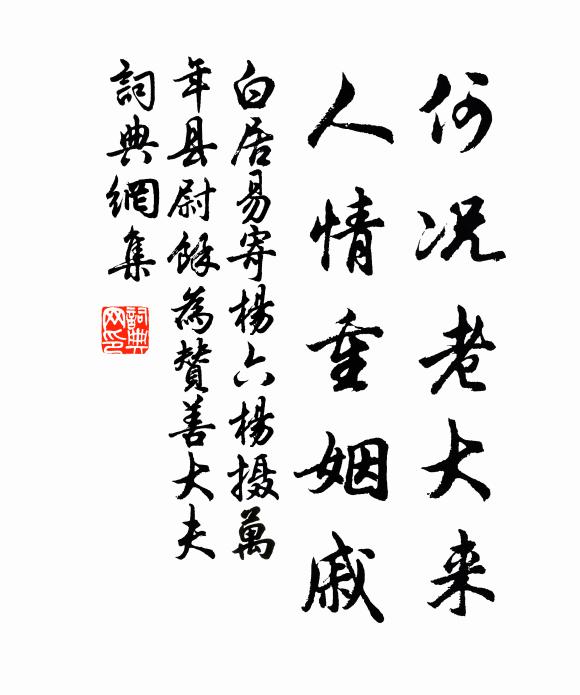 何况老大来
人情重姻戚
白居易寄楊六楊摄萬
年县尉餘為贊善大夫
詞典網集
詞典
网印